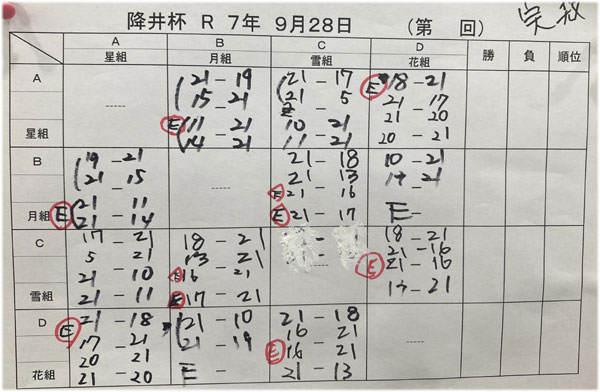 降井杯 R 7年 9月28日 (第 回)
A 星組 B 月組 C 雪組 D 花組 勝 負 順位
A 星組
----- 21-19 21-17 E 18-21
15-21 21-5 21-17
E 11-21 10-21 21-20
14-21 11-21 20-21
B 月組
19-21 ----- 21-18 10-21
21-15 21-13 -21
E 21-11 E 21-16 E-
21-14 E 21-17
C 雪組
17-21 18-21 18-21
5-21 13-21 21-16
21-10 E 16-21 E 21-16
21-11 E 17-21 -21
D 花組
E 21-18 21-10 21-18 -----
17-21 21-19 16-21
20-21 E- E 16-21
21-20 21-13